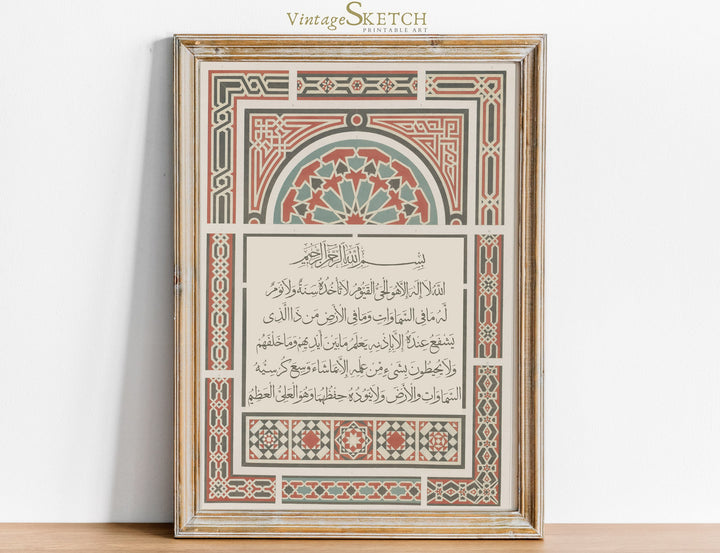 VintageSKETCH
PRINTABLE ART
بسم الله الرحمن الرحيم
الله لا إله إلا هو الحي القيوم لا تأخذه سنة ولا نوم
له ما في السماوات وما في الأرض من ذا الذي
يشفع عنده إلا بإذنه يعلم ما بين أيديهم وما خلفهم
ولا يحيطون بشيء من علمه إلا بما شاء وسع كرسيه
السماوات والأرض ولا يئوده حفظهما وهو العلي العظيم